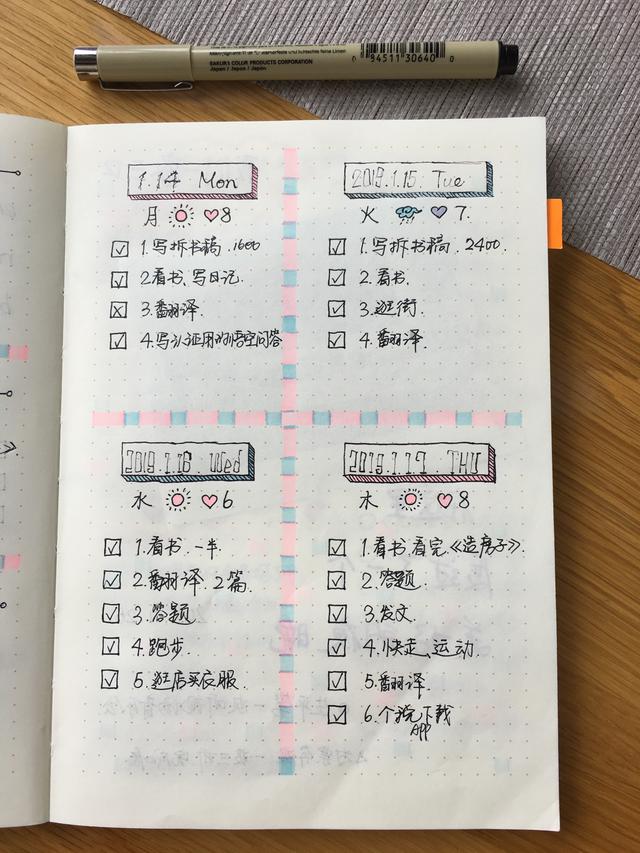 SAKURA COLOR PRODUCTS CORPORATION
Japan / Japon / Japan
0 84511 30640 0
1.14 Mon
月 8
1.写拆书稿.1600
2.看书、写日记.
3.翻译.
4.写认证用的悟空问答
2019.1.15. Tue
火 7.
1.写拆书稿. 2400.
2.看书.
3.逛街.
4.翻译.
2019.1.16. Wed
水 6
1.看书.一半.
2.翻译.2篇.
3.答题
4.跑步.
5.逛店买衣服.
2019.1.17. THU
木 8
1.看书.看完《造房子》.
2.答题.
3.发文.
4.快走、运动.
5.翻译.
6.个税下载
APP